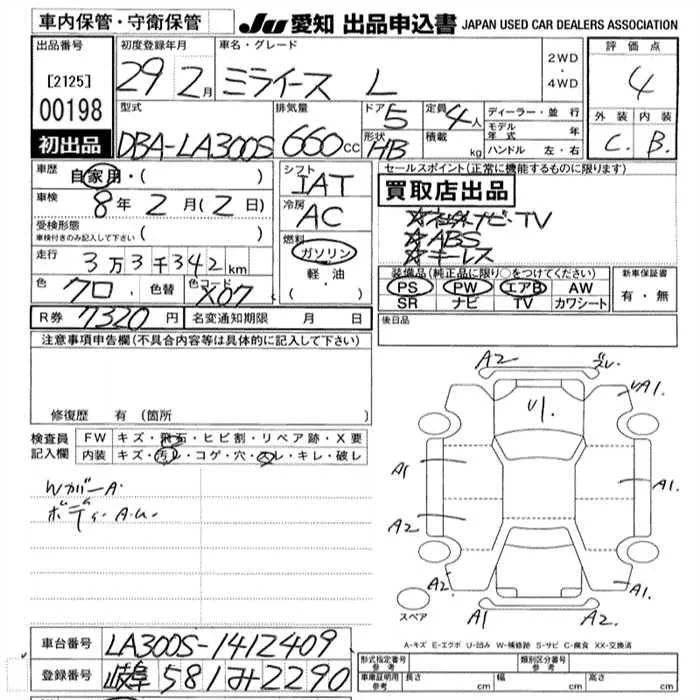 車内保管・守衛保管
JU 愛知 出品申込書 JAPAN USED CAR DEALERS ASSOCIATION
出品番号 初度登録年月 車名・グレード 評価点
[2125] 29 2月 ミライース L 2WD・4WD 4
00198 型式 排気量 ドア 5 定員 4人 ディーラー・並行 外装 内装
初出品 DBA-LA300S 660cc 形状 HB 積載 kg モデル年式 年 C. B.
ハンドル 左・右
車歴 自家用・( ) シフト IAT セールスポイント(正常に機能するものに限ります)
車検 8年 2月(2日) 冷房 AC 買取店出品
受検形態 車検付きのみ記入して下さい ( ) ☆社外ナビ・TV
燃料 ☆ABS
走行 3万3千342km ガソリン ☆キーレス
軽油 装備品(純正品に限り○をつけてください) 新車保証書
色 クロ 色替 色コード X07 ( ・ ) PS PW エアB AW 有・無
SR ナビ TV カワシート
R券 7320円 名変通知期限 月 日 後日品
注意事項申告欄(不具合内容等は具体的に記入して下さい)
修復歴 有 (箇所
検査員記入欄 FW キズ・飛石・ヒビ割・リペア跡・X要
内装 キズ・汚レ・コゲ・穴・スレ・キレ・破レ
Wカバー A.
ボディ. A.U.
A2 ズレ.
U1. A1.
A1 A1.
A2
A2. A1.
スペア A1 A2.
A-キズ E-エクボ U-凹み W-補修跡 S-サビ C-腐食 XX-交換済
車台番号 LA300S-1412409 形式指定番号 参考 類別区分番号 参考
登録番号 岐阜 581 み 2290 車庫証明用 参考 長さ cm 幅 cm 高さ cm